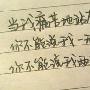 当我痛苦地站在
你不能说我一无
你不能说我两